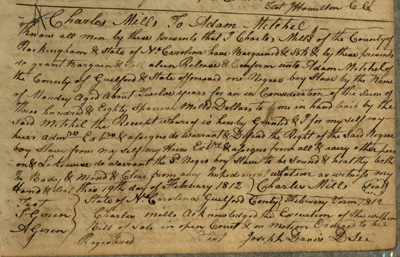 Test Hamilton C.C.
Charles Mills To Adam Mitchel
Know all men by these presents that I Charles Mills of the County of
Rockingham & State of No Carolina have Bargained & Sold & by these presents
do grant Bargain & Sell alien Release & Confirm unto Adam Mitchel of
the County of Guilford & State aforesaid one Negroe boy Slave by the Name
of Monday Aged About Twelve years for an in Consideration of the Sum of
Three hundred & Eighty Spanish Milld Dollars to me in hand paid by the
Said Mitchel the Receipt whereof is hereby Granted & I for my self my
heirs Admrs Exrs & assigns do Warrant & Defend the Right of the Said Negroe
boy Slave from my Self my Heirs Exrs & assigns from all & every other person
on & I likewise do warrant the Sd Negroe boy Slave to be Sound & healthy both
in Body & Mind & Clear from any impediment whatever as witness my
Hand & Seal this 19th day of February 1812 Charles Mills (Seal)
Test State of No Carolina Guilford County February Term 1812
Green Charles Mills Acknowledged the Execution of the within
A Green Bill of Sale in open Court & on Motion Ordered to be
Registered Test Joseph Davis D.